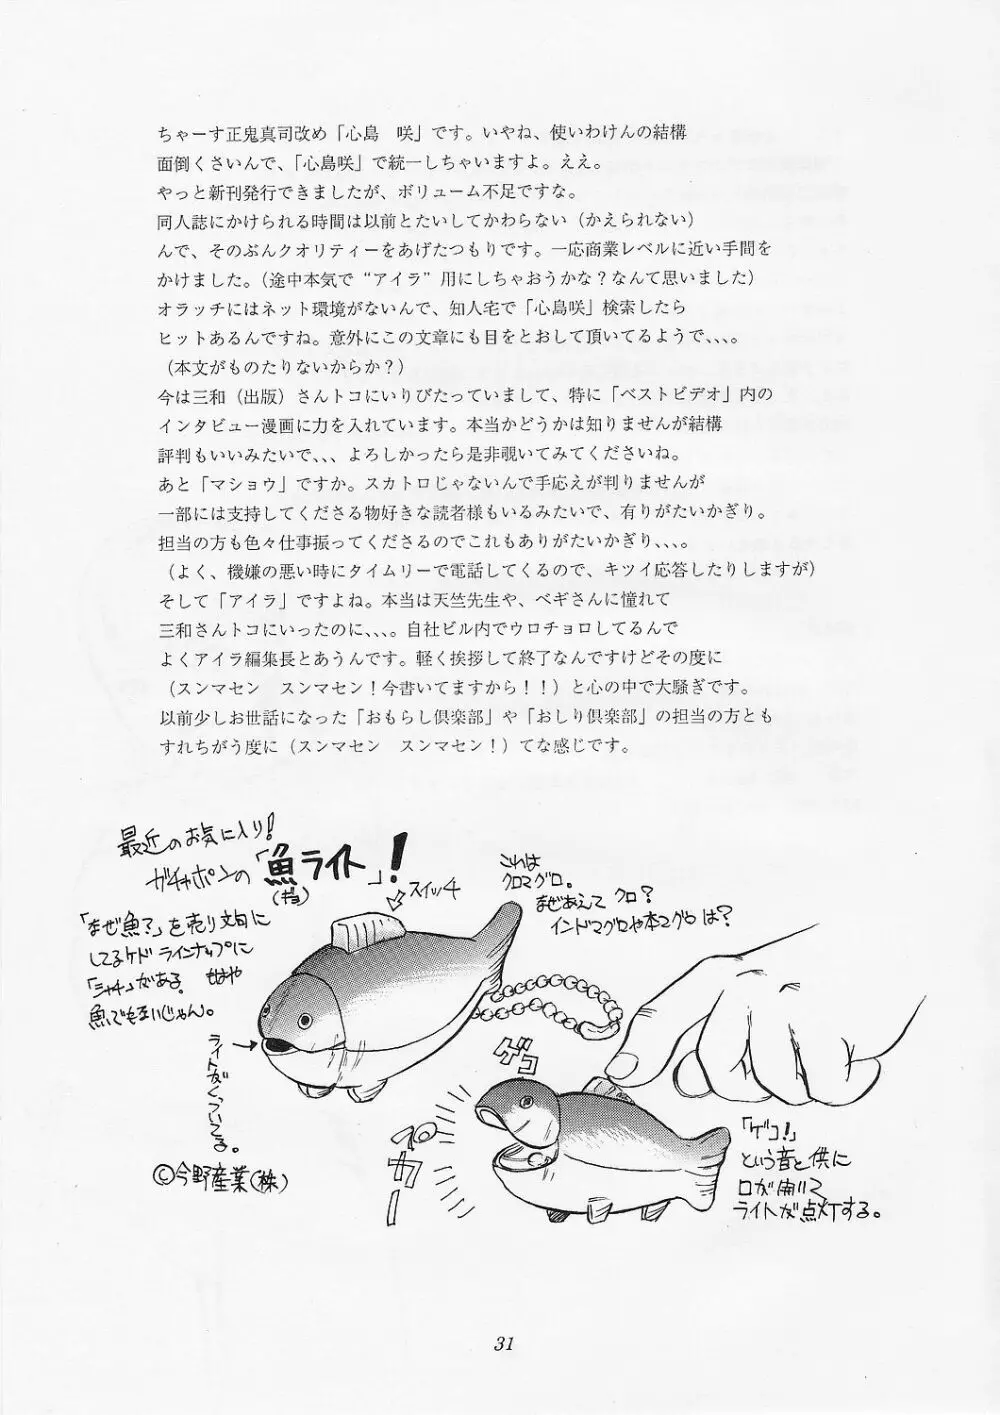 ちゃーす正鬼真司改め「心島　咲」です。いやね、使いわけんの結構
面倒くさいんで、「心島咲」で統一しちゃいますよ。ええ。
やっと新刊発行できましたが、ボリューム不足ですな。
同人誌にかけられる時間は以前とたいしてかわらない（かえられない）
んで、そのぶんクオリティーをあげたつもりです。一応商業レベルに近い手間を
かけました。（途中本気で“アイラ”用にしちゃおうかな？なんて思いました）
オラッチにはネット環境がないんで、知人宅で「心島咲」検索したら
ヒットあるんですね。意外にこの文章にも目をとおして頂いてるようで、、、。
（本文がものたりないからか？）
今は三和（出版）さんトコにいりびたっていまして、特に「ベストビデオ」内の
インタビュー漫画に力を入れています。本当かどうかは知りませんが結構
評判もいいみたいで、、、よろしかったら是非覗いてみてくださいね。
あと「マショウ」ですか。スカトロじゃないんで手応えが判りませんが
一部には支持してくださる物好きな読者様もいるみたいで、有りがたいかぎり。
担当の方も色々仕事振ってくださるのでこれもありがたいかぎり、、、。
（よく、機嫌の悪い時にタイムリーで電話してくるので、キツイ応答したりしますが）
そして「アイラ」ですよね。本当は天竺先生や、ベギさんに憧れて
三和さんトコにいったのに、、、。自社ビル内でウロチョロしてるんで
よくアイラ編集長とあうんです。軽く挨拶して終了なんですけどその度に
（スンマセン　スンマセン！今書いてますから！！）と心の中で大騒ぎです。
以前少しお世話になった「おもらし倶楽部」や「おしり倶楽部」の担当の方とも
すれちがう度に（スンマセン　スンマセン！）てな感じです。
最近のお気に入り!
ガチャポンの「魚ライト」!
(ギョ)
スイッチ
これは
クロマグロ。
なぜあえて クロ?
インドマグロや本マグロは?
「なぜ魚?」を売り文句に
してるケド ラインナップに
「シャチ」がある。 もはや
魚でもないじゃん。
ライトがくっついてる。
©今野産業(株)
ゲコ
ピカー
「ゲコ!」
という音と供に
口が開いて
ライトが点灯する。
31